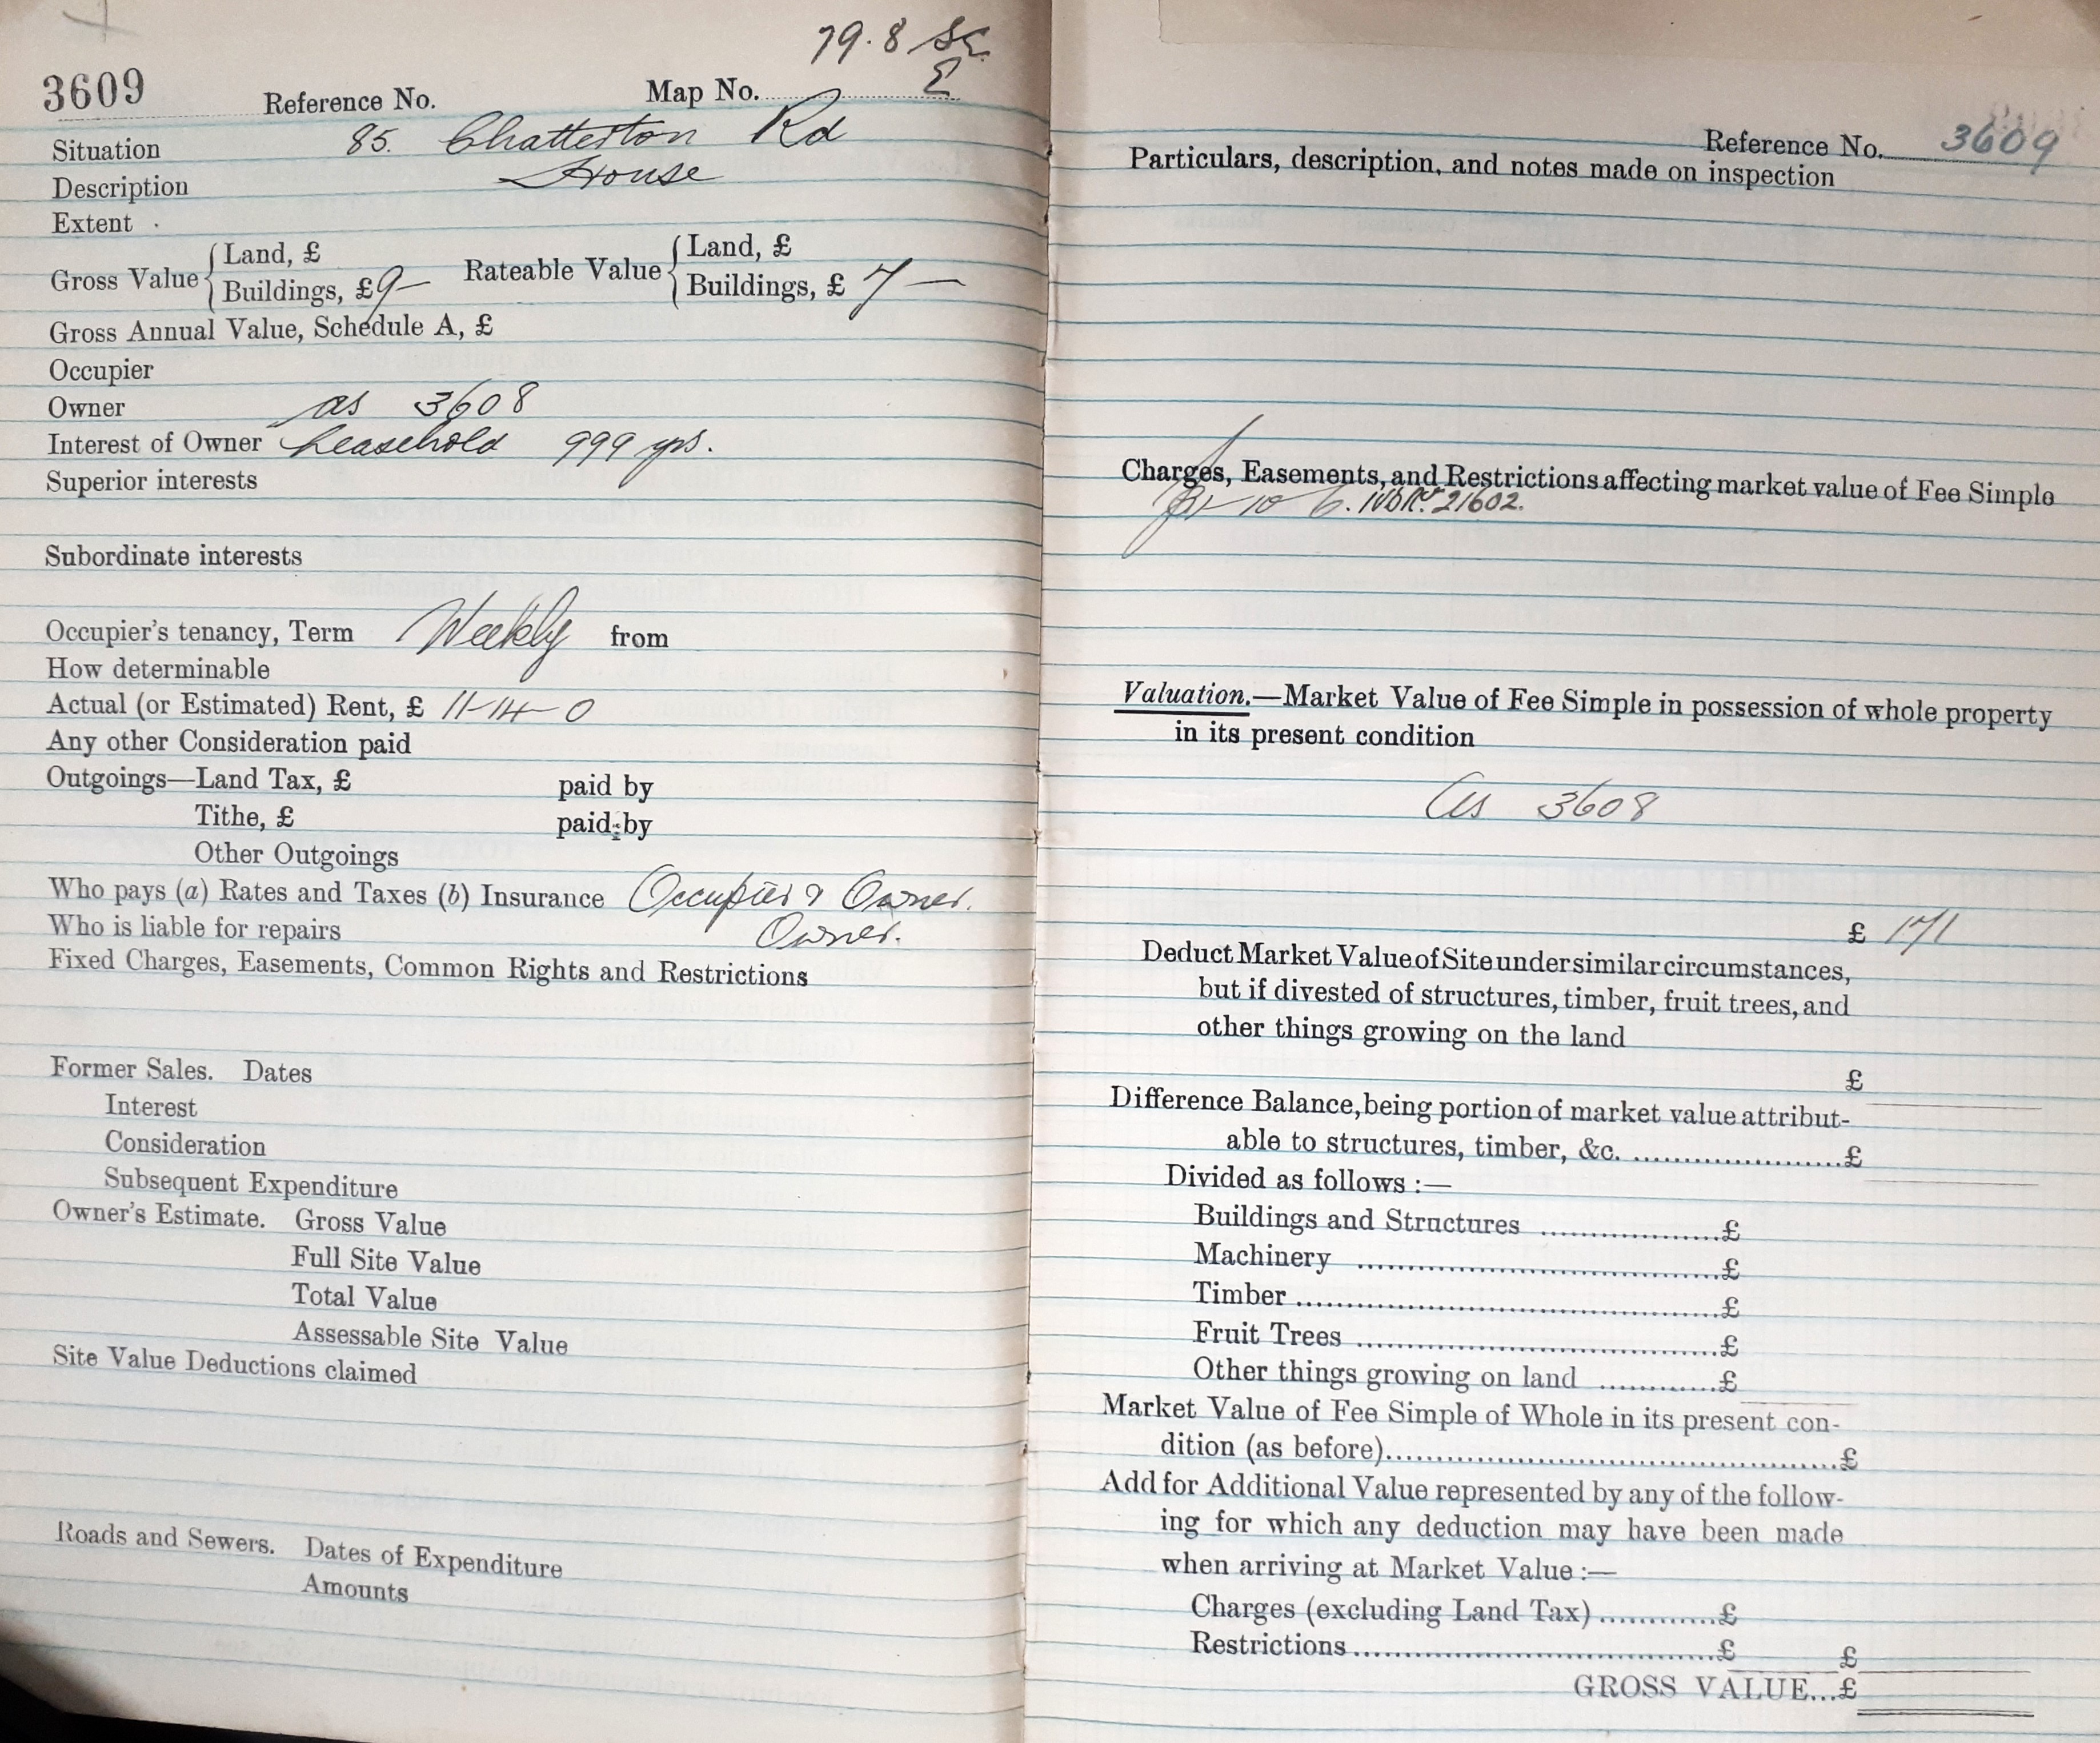 79.8 SE
3609 Reference No. Map No. E
Situation 85. Chatterton Rd
Description House
Extent
Gross Value { Land, £ Rateable Value { Land, £
Buildings, £ 9— Buildings, £ 7—
Gross Annual Value, Schedule A, £
Occupier
Owner as 3608
Interest of Owner Leasehold 999 yrs.
Superior interests
Subordinate interests
Occupier's tenancy, Term Weekly from
How determinable
Actual (or Estimated) Rent, £ 11-14-0
Any other Consideration paid
Outgoings—Land Tax, £ paid by
Tithe, £ paid by
Other Outgoings
Who pays (a) Rates and Taxes (b) Insurance Occupier & Owner.
Who is liable for repairs Owner.
Fixed Charges, Easements, Common Rights and Restrictions
Former Sales. Dates
Interest
Consideration
Subsequent Expenditure
Owner's Estimate. Gross Value
Full Site Value
Total Value
Assessable Site Value
Site Value Deductions claimed
Roads and Sewers. Dates of Expenditure
Amounts
Reference No. 3609
Particulars, description, and notes made on inspection
Charges, Easements, and Restrictions affecting market value of Fee Simple
21602.
Valuation.—Market Value of Fee Simple in possession of whole property
in its present condition
As 3608
£ 171
Deduct Market Value of Site under similar circumstances,
but if divested of structures, timber, fruit trees, and
other things growing on the land
£
Difference Balance, being portion of market value attribut-
able to structures, timber, &c. ......................£
Divided as follows :—
Buildings and Structures ...................£
Machinery .......................................£
Timber .............................................£
Fruit Trees .......................................£
Other things growing on land ............£
Market Value of Fee Simple of Whole in its present con-
dition (as before)................................................£
Add for Additional Value represented by any of the follow-
ing for which any deduction may have been made
when arriving at Market Value :—
Charges (excluding Land Tax) ............£
Restrictions......................................£ £
GROSS VALUE...£